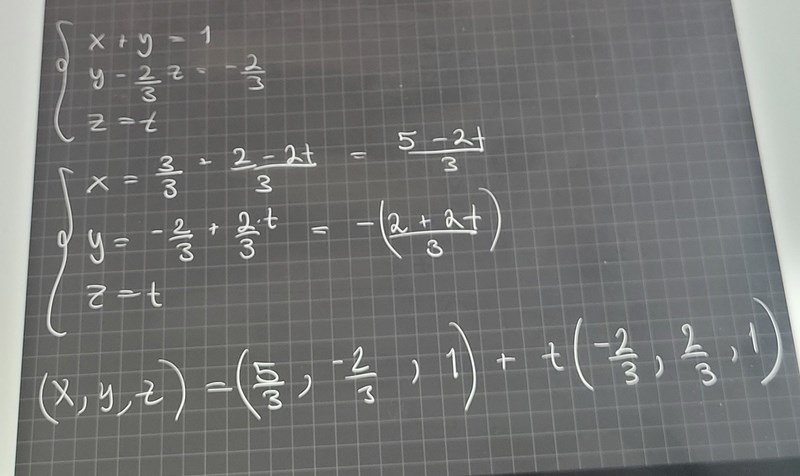 x + y = 1
y - 2/3 z = -2/3
z = t
x = 3/3 + (2 - 2t)/3 = (5 - 2t)/3
y = -2/3 + 2/3 · t = -((2 + 2t)/3)
z = t
(x, y, z) = (5/3, -2/3, 1) + t(-2/3, 2/3, 1)